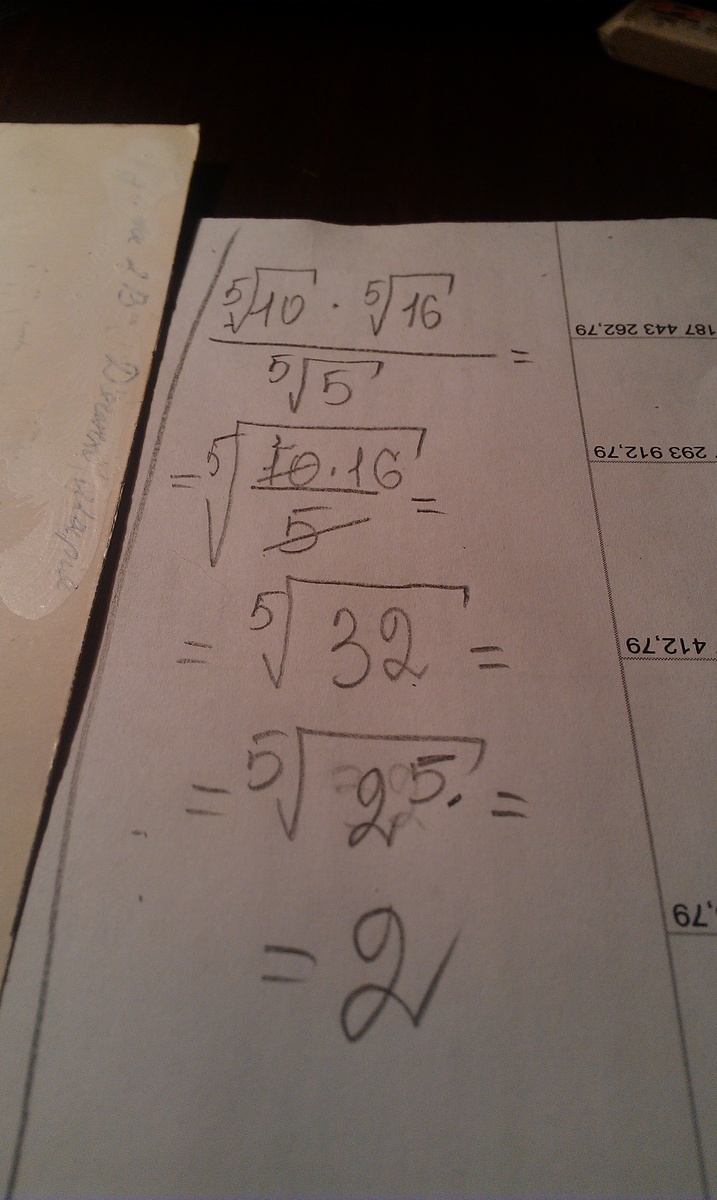 ⁵√10 · ⁵√16
⁵√5 =
= ⁵√ 10·16 =
5
= ⁵√32 =
= ⁵√2⁵ =
= 2
187 443 262,79
293 912,79
412,79
,79